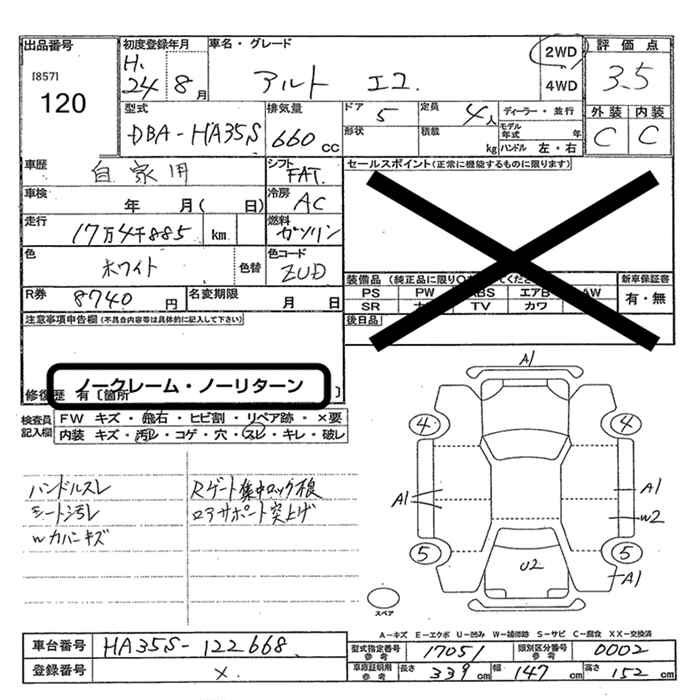 出品番号
[857]
120
初度登録年月
H.
24 8月
車名・グレード
アルト エコ.
2WD
4WD
評価点
3.5
型式
DBA-HA35S
排気量
660 cc
ドア
5
定員
4人
ディーラー・並行
形状
積載
kg
モデル年式 年
ハンドル 左・右
外装 内装
C C
車歴
自家用
シフト
FAT.
セールスポイント(正常に機能するものに限ります)
車検
年 月( 日)
冷房
AC
走行
17万4千885 km
燃料
ガソリン
色
ホワイト
色替
色コード
ZUD
装備品(純正品に限り○
てください)
新車保証書
PS PW ABS エアB AW
SR TV カワ
有・無
後日品
R券
8740 円
名変期限
月 日
注意事項申告欄(不具合内容等は具体的に記入して下さい)
ノークレーム・ノーリターン
修復歴 有 [箇所 ]
検査員記入欄
FW キズ・飛石・ヒビ割・リペア跡・×要
内装 キズ・汚レ・コゲ・穴・スレ・キレ・破レ
ハンドルスレ
シート汚レ
Wカバーキズ
Rゲート集中ロック不良
ロアサポート突上げ
A1
4 4
A1
A1
W2
5 5
U2
A1
スペア
A-キズ E-エクボ U-凹み W-補修跡 S-サビ C-腐食 XX-交換済
車台番号
HA35S-122668.
登録番号
×.
型式指定番号 参考
17051
類別区分番号 参考
0002
車庫証明用 参考
長さ 339 cm
幅 147 cm
高さ 152 cm